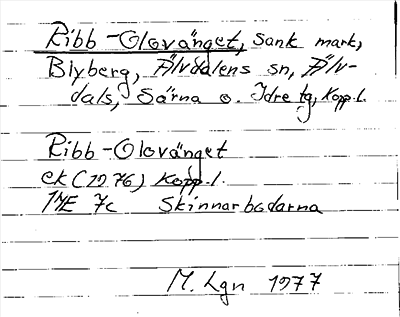 Ribb-Olovänget, sank mark,
Blyberg, Älvdalens sn, Älv-
dals, Särna o. Idre tg, Kopp.l.
Ribb-Olovänget
ek (1976) Kopp.l.
14E 7c Skinnarbodarna
M. Lgn 1977